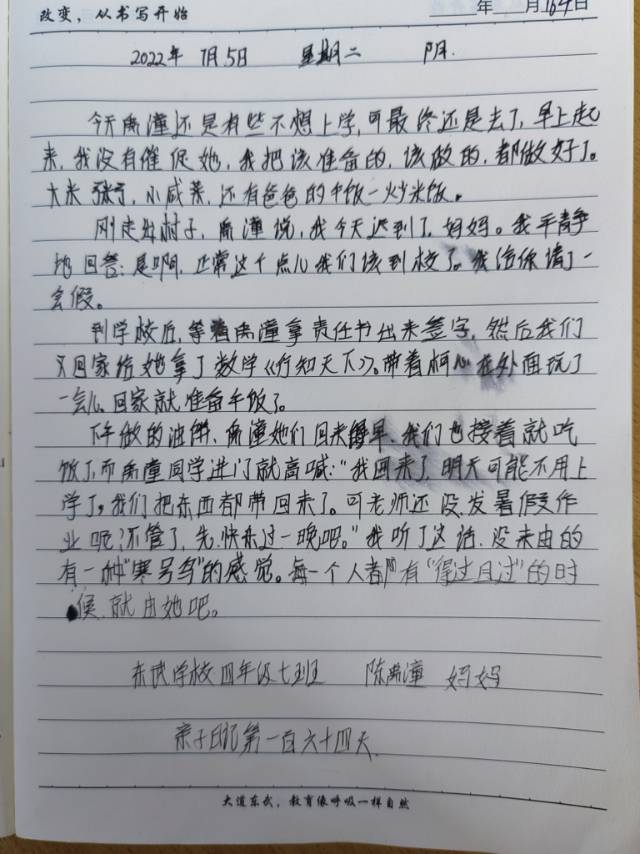 改变，从书写开始
年 月 164日
2022年 7月5日 星期二 阴.
今天雨潼还是有些不想上学,可最终还是去了,早上起
来,我没有催促她,我把该准备的,该做的,都做好了。
大米 小咸菜,还有爸爸的午饭一炒米饭。
刚走出村子,雨潼说,我今天迟到了,妈妈。我平静
地回答:是啊,正常这个点儿我们该到校了。我给你请了一
会假。
到学校后,等着雨潼拿责任书出来签字,然后我们
又回家给她拿了数学《行知天下》。带着柯心在外面玩了
一会儿,回家就准备午饭了。
下午做的油饼,雨潼她们回来得早,我们也接着就吃
饭了,而雨潼同学进门就高喊:"我回来了,明天可能不用上
学了,我们把东西都带回来了。可老师还没发暑假作
业呢,不管了,先快乐过一晚吧。"我听了这话,没来由的
有一种"寒号鸟"的感觉。每一个人都有"得过且过"的时
候,就由她吧。
东武学校四年级七班 陈雨潼 妈妈
亲子日记第一百六十四天.
大道东武，教育像呼吸一样自然